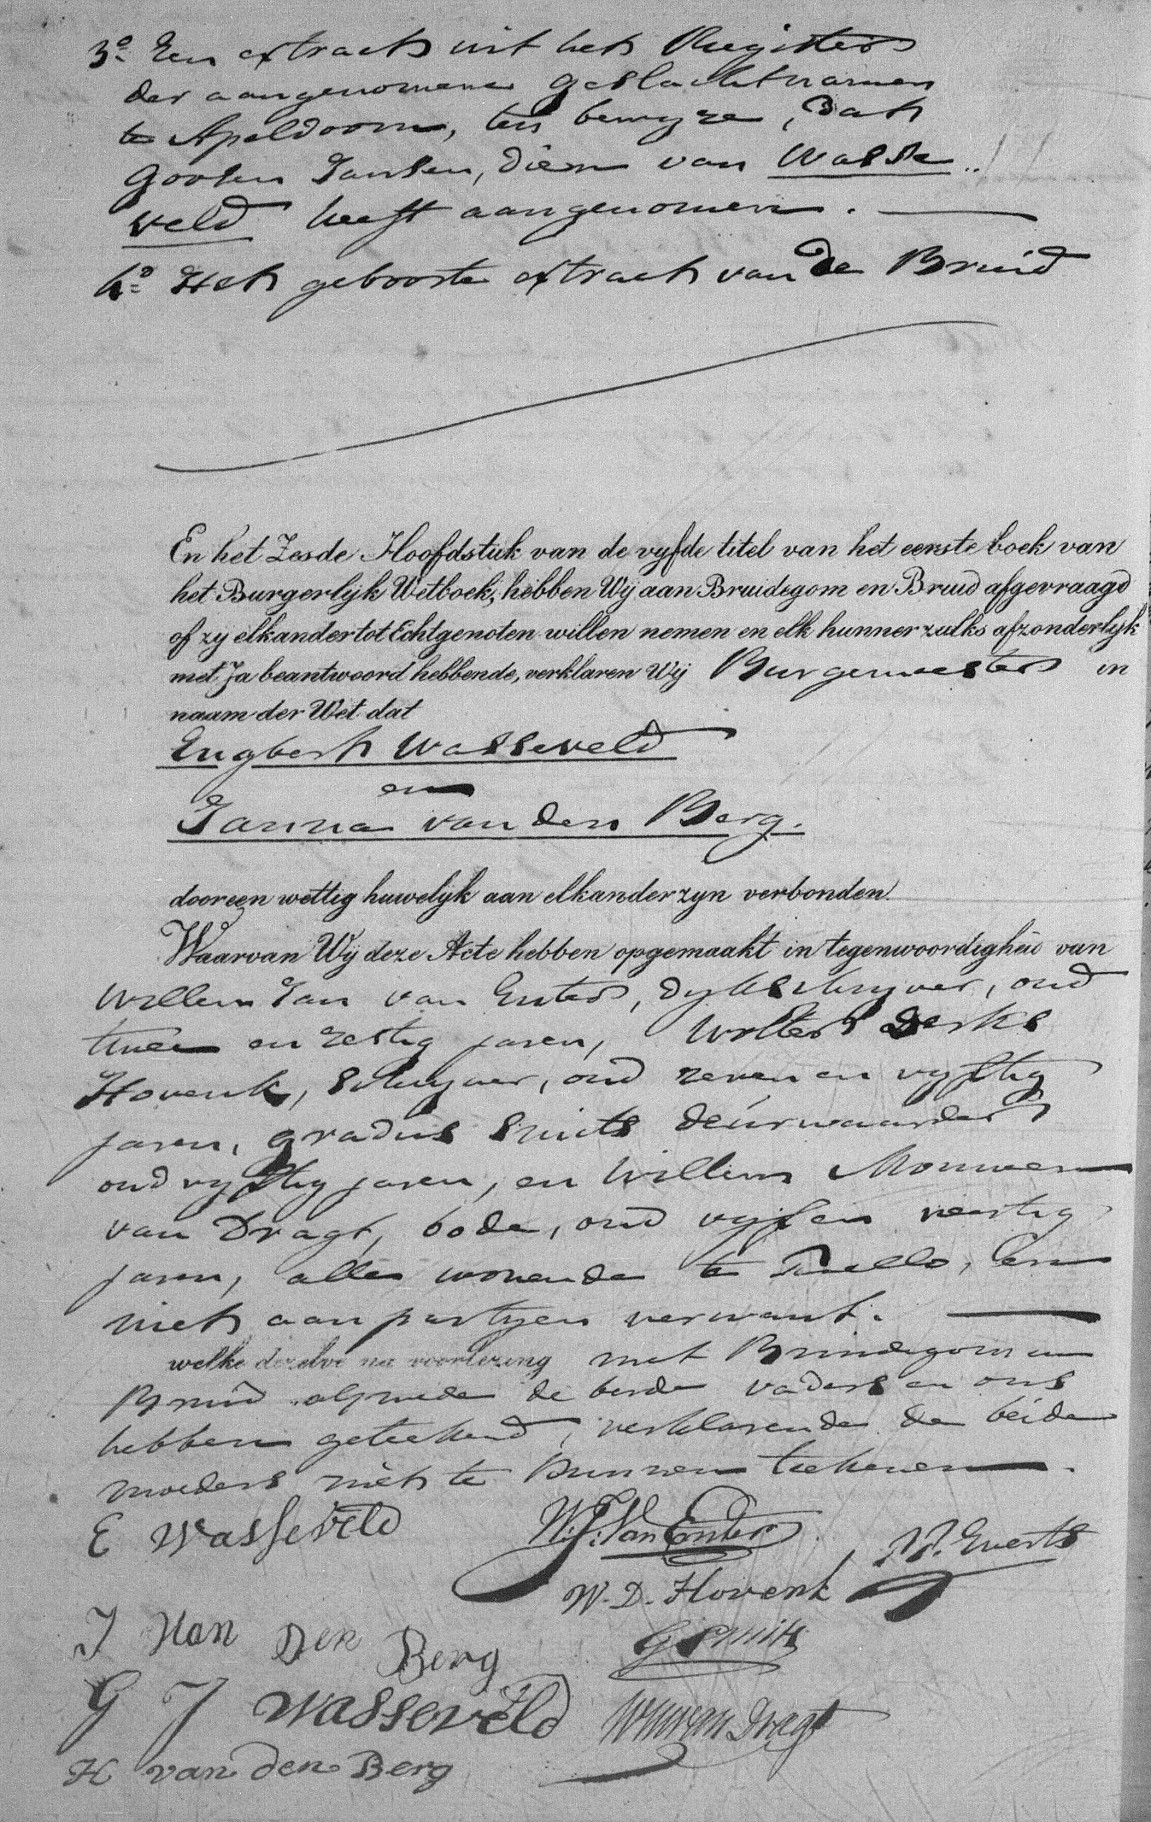 3o. Een extract uit het Register
der aangenomene geslachtnamen
te Apeldoorn, ten bewyze, dat
Goosen Jansen, dien van Wasse..
veld heeft aangenomen.
4o. Het geboorte extract van de Bruid
En het Zesde Hoofdstuk van de vyfde titel van het eerste boek van
het Burgerlyk Wetboek, hebben Wij aan Bruidegom en Bruid afgevraagd
of zy elkander tot Echtgenoten willen nemen en elk hunner zulks afzonderlyk
met Ja beantwoord hebbende, verklaren Wij Burgemeester in
naam der Wet dat
Engbert Wasseveld
en
Janna van den Berg.
door een wettig huwelyk aan elkander zyn verbonden.
Waarvan Wij deze Acte hebben opgemaakt in tegenwoordigheid van
Willem Jan van Enter, dykschryver, oud
twee en zestig jaren, Wolter Derks
Hovenk, schryver, oud zeven en vyftig
jaren, gradus Smits deurwaarder
oud vyftig jaren, en Willem Mouwen
van Dragt, bode, oud vyf en veertig
jaren, allen wonende te Twello, en
niet aan partyen verwant.
welke dezelve na voorlezing met Bruidegom en
Bruid alsmede de beide vaders en ons
hebben geteekend, verklarende de beide
moeders niet te kunnen teekenen.
E Wasseveld
W. J. Van Enter
W. Everts
W. D. Hovenk
J Van Den Berg
G Smits
G J Wasseveld
WM van Dragt
H van den Berg